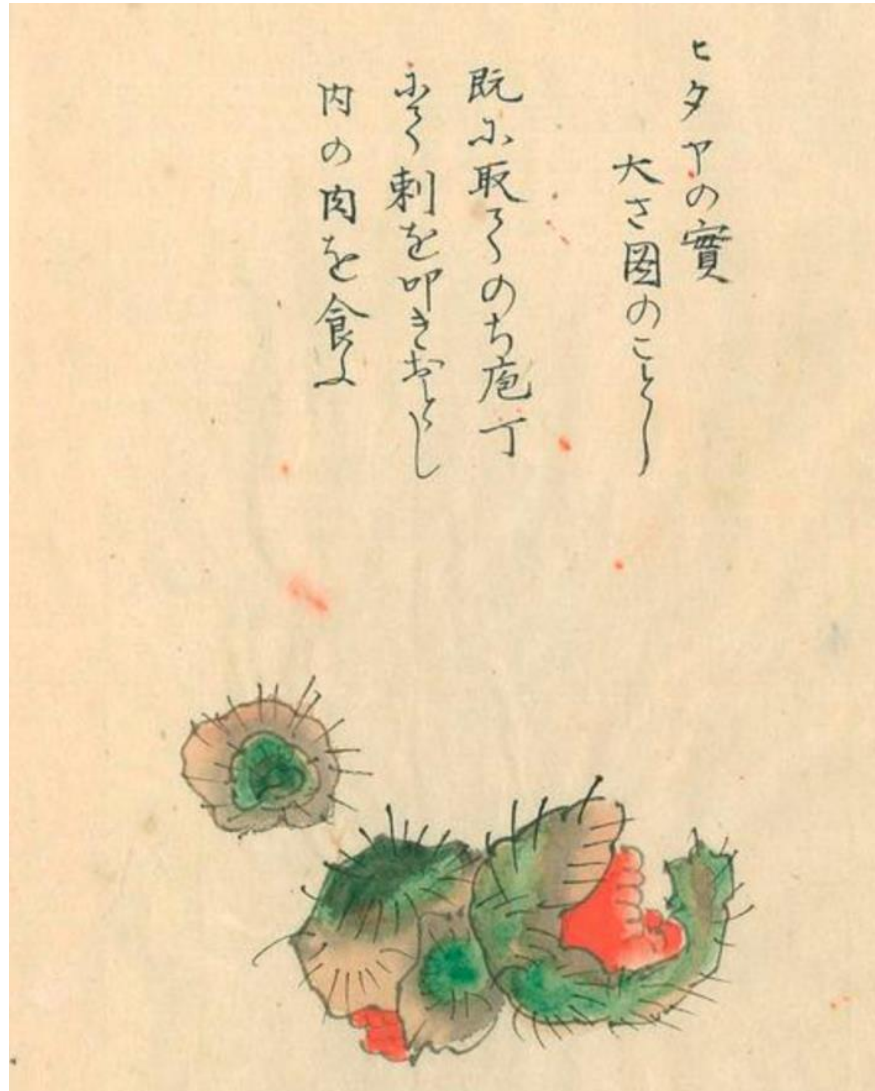 ヒタヤの實
大さ圖のことし
既に取てのち庖丁
にて刺を叩きおとし
内の肉を食ふ